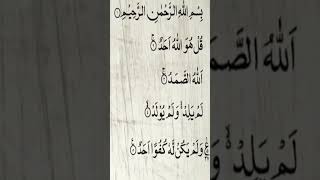 بِسْمِ اللهِ الرَّحْمٰنِ الرَّحِيْمِ
قُلْ هُوَ اللهُ اَحَدٌ ۚ
اَللهُ الصَّمَدُ ۚ
لَمْ يَلِدْ ۙ وَلَمْ يُوْلَدْ ۙ
وَلَمْ يَكُنْ لَّهٗ كُفُوًا اَحَدٌ ۚ